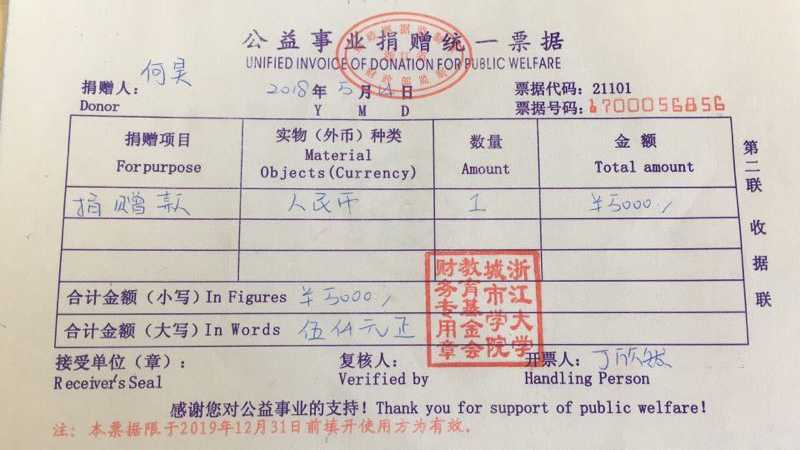 公益事业捐赠统一票据
UNIFIED INVOICE OF DONATION FOR PUBLIC WELFARE
捐赠人： 何昊 2018 年 5 月 14 日 票据代码：21101
Donor Y M D 票据号码：1700056856
捐赠项目 实物（外币）种类 数量 金 额
For purpose Material Amount Total amount
Objects(Currency)
捐赠款 人民币 1 ¥5000./
合计金额（小写）In Figures ¥5000./
合计金额（大写）In Words 伍仟元正
第二联 收据联
浙江大学城市学院教育基金会财务专用章
接受单位（章）： 复核人： 开票人：
Receiver's Seal Verified by Handling Person
感谢您对公益事业的支持！Thank you for support of public welfare!
注：本票据限于2019年12月31日前填开使用方为有效。